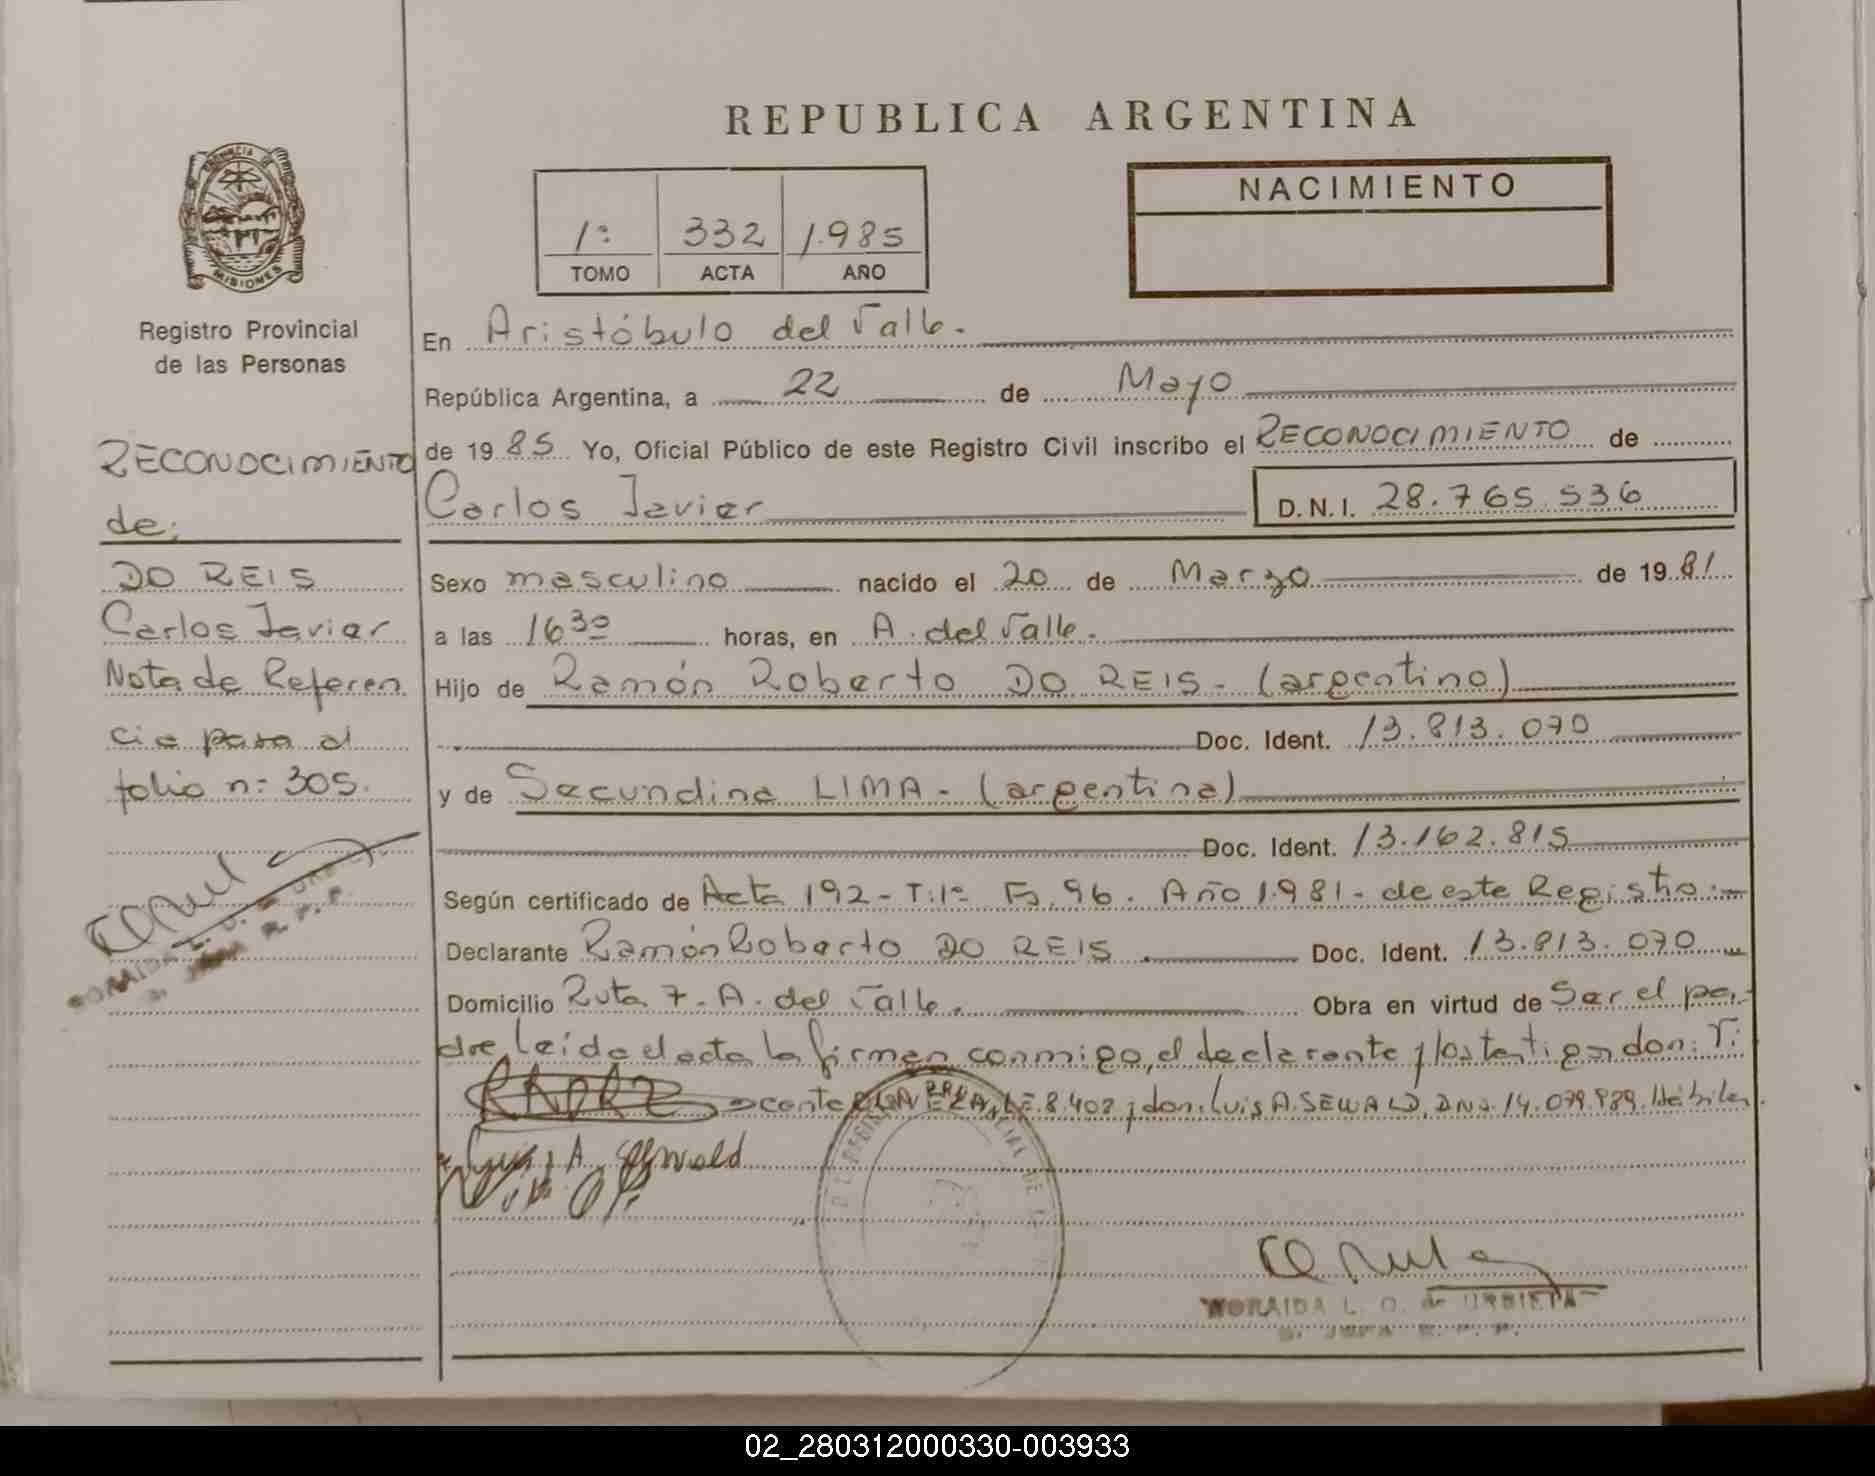 REPUBLICA ARGENTINA
PROVINCIA DE
MISIONES
Registro Provincial
de las Personas
1º 332 1.985
TOMO ACTA AÑO
NACIMIENTO
RECONOCIMIENTO
de:
DO REIS
Carlos Javier
Nota de Referen
cia pasa al
folio nº 305.
En Aristóbulo del Valle.
República Argentina, a 22 de Mayo
de 1985 Yo, Oficial Público de este Registro Civil inscribo el RECONOCIMIENTO de
Carlos Javier D.N.I. 28.765.536
Sexo masculino nacido el 20 de Marzo de 1981
a las 16 30 horas, en A. del Valle.
Hijo de Ramón Roberto DO REIS - (argentino)
Doc. Ident. 13.813.070
y de Secundina LIMA - (argentina)
Doc. Ident. 13.162.815
Según certificado de Acta 192 - T:1º Fs. 96. Año 1.981 - de este Registro
Declarante Ramón Roberto DO REIS Doc. Ident. 13.813.070
Domicilio Ruta 7 - A. del Valle. Obra en virtud de Ser el pa-
dre Leída el acta la firman conmigo, el declarante y los testigos don: Vi
cente LE. 8.402 y don: Luis A. SEWALD, DNI. 14.079.989. Hábiles.
Luis A. Sewald
L. O. de URBIETA
02_280312000330-003933